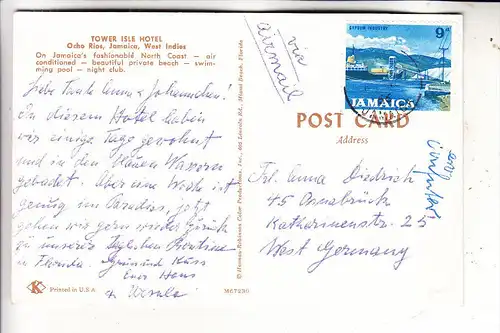 TOWER ISLE HOTEL
Ocho Rios, Jamaica, West Indies
On Jamaica's fashionable North Coast — air
conditioned — beautiful private beach — swim-
ming pool — night club.
Liebe Tante Anna, Johannchen!
In diesem Hotel haben
wir einige Tage gewohnt
und in den blauen Wassern
gebadet. Aber eine Woche ist
genug im Paradies, jetzt
gehen wir gern wieder zurück
zu unserer täglichen Routine
in Florida. Gruß und Kuss
Euer Hans
+ Ursula
Printed in U.S.A.
M67230
via
airmail
GYPSUM INDUSTRY
9d
JAMAICA
POST CARD
Address
Frl. Anna Diedrich
45 Osnabrück
Katharinenstr. 25
West Germany